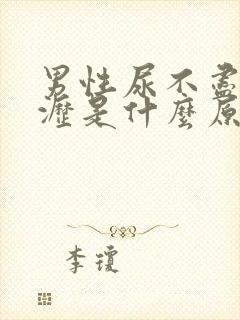 男性尿不盡
瀝是什麼原
李瓊